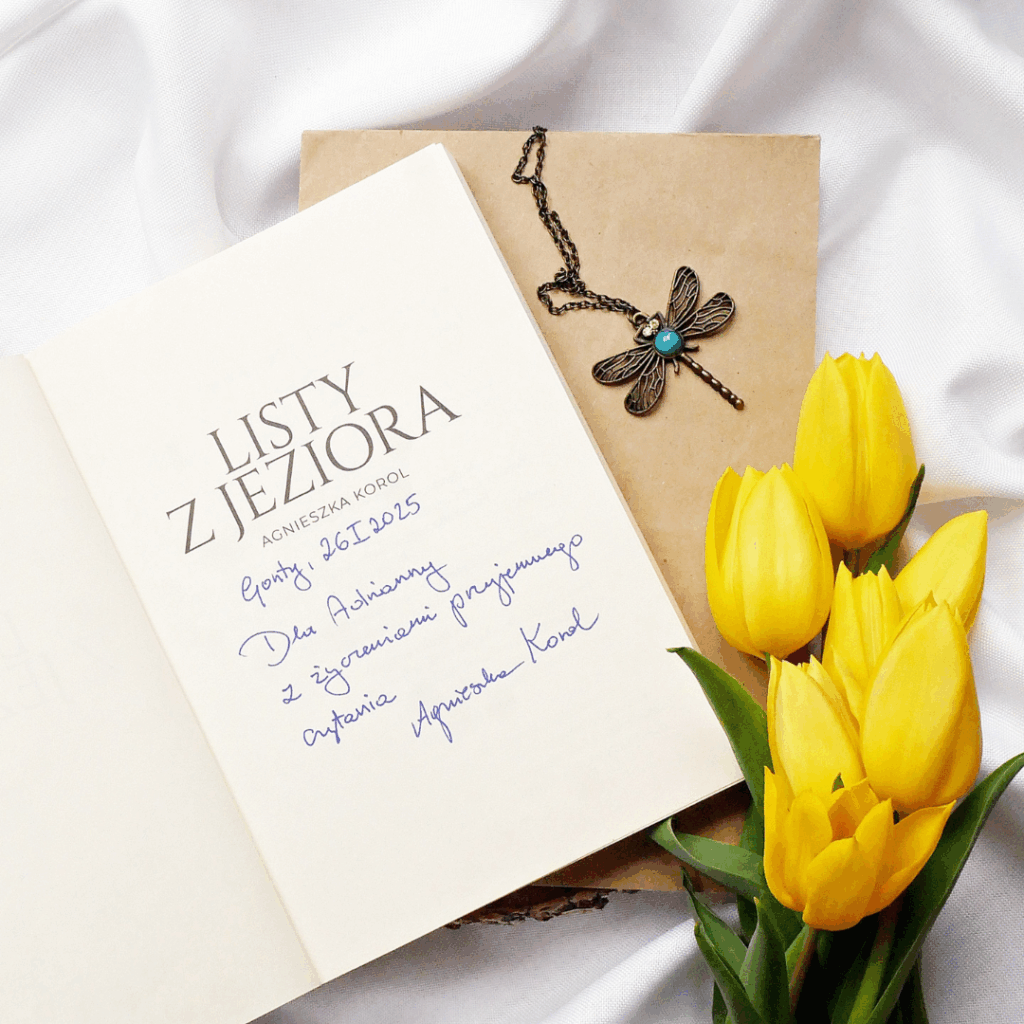 LISTY
Z JEZIORA
AGNIESZKA KOROL
Gonty, 26 I 2025
Dla Adrianny
z życzeniami przyjemnego
czytania
Agnieszka Korol